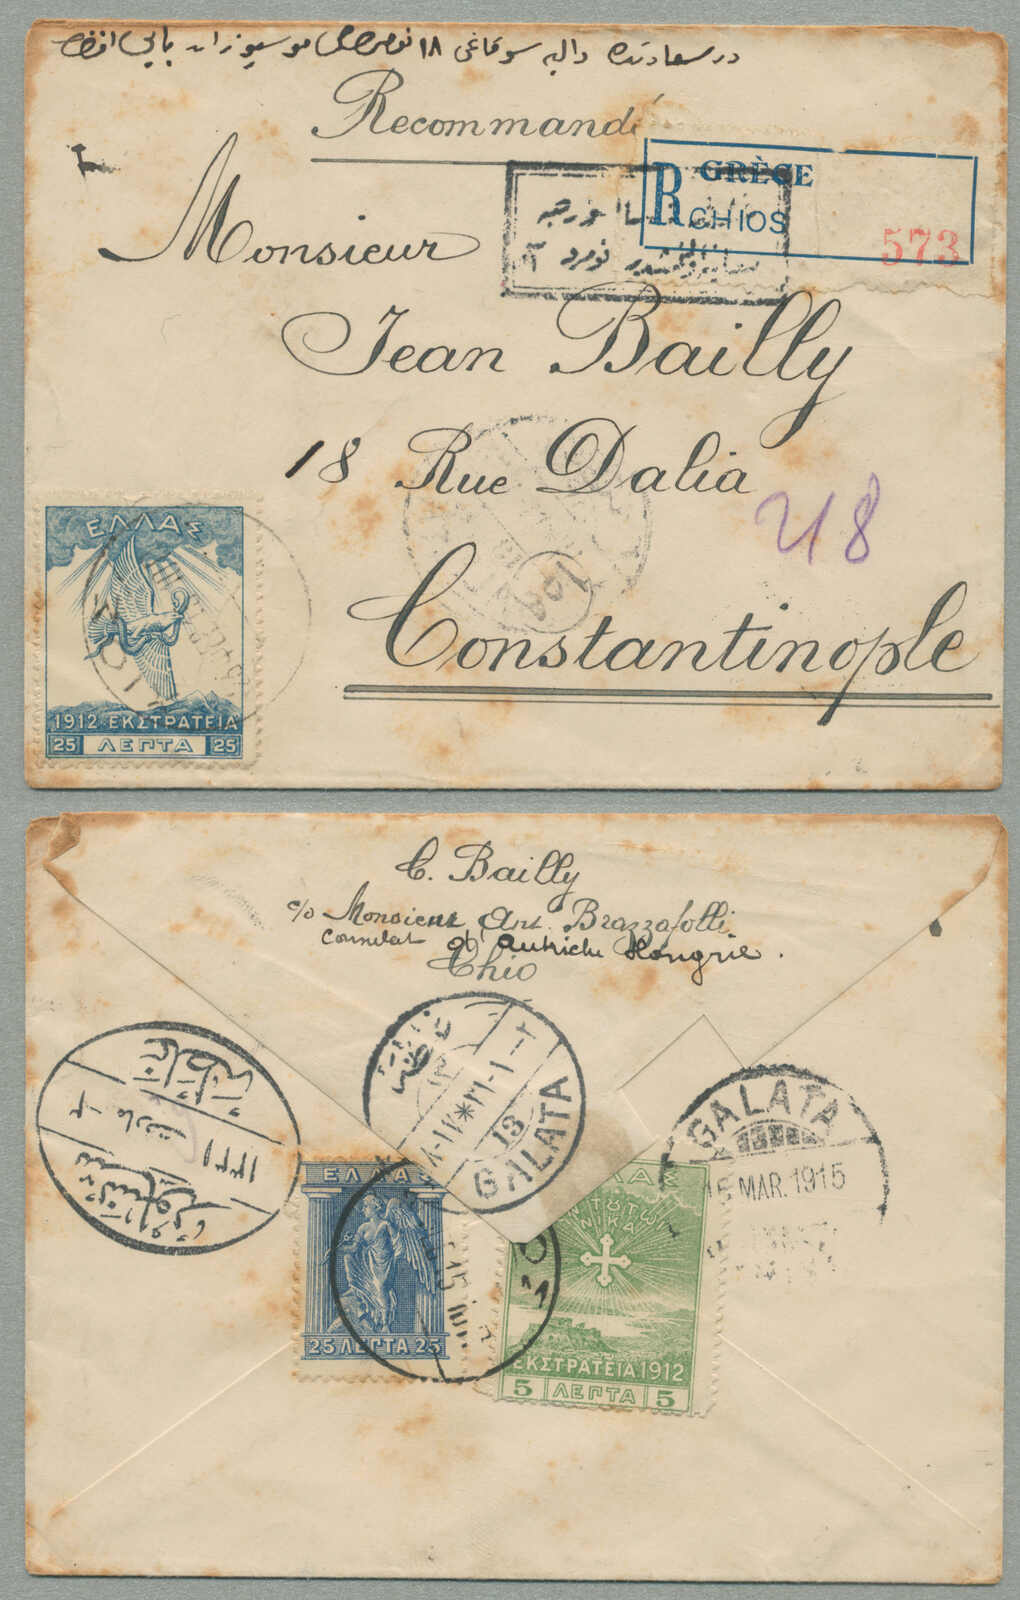 در سعادتده دالیه سوقاغی ١٨ نومرولی موسیو ژان بایی افندی
Recommandé
GRÈCE
R CHIOS
573
Monsieur
Jean Bailly
18 Rue Dalia
Constantinople
418
ΕΛΛΑΣ
1912 ΕΚΣΤΡΑΤΕΙΑ
25 ΛΕΠΤΑ 25
C. Bailly
c/o Monsieur Ant. Brazzafolli
Consulat d'Autriche Hongrie.
Chio
غلطه
٢ مارت ١٣٣١
GALATA
13
GALATA
15 MAR. 1915
ΕΛΛΑΣ
25 ΛΕΠΤΑ 25
ΕΝ ΤΟΥΤΩ
ΝΙΚΑ
ΕΚΣΤΡΑΤΕΙΑ 1912
5 ΛΕΠΤΑ 5